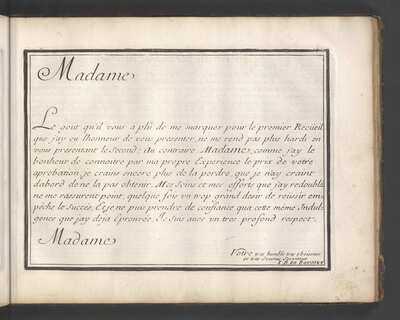 Madame
Le gout qu'il vous a plû de me marquer pour le premier Recüeil
que j'ay eu l'honneur de vous presenter, ne me rend pas plus hardi en
vous presentant le Second: Au contraire Madame, comme j'ay le
bonheur de connoitre par ma propre Experience le prix de votre
aprobation, je crains encore plus de la perdre, que je n'ay craint
d'abord de ne la pas obtenir. Mes Soins et mes efforts que j'ay redoublé
ne me rassurent point; quelque fois un trop grand desir de reussir em-
pêche le Succés, Et je ne puis prendre de confiance qu'a cette même Indul-
gence que j'ay deja Eprouvée. Je Suis avec un tres profond respect.
Madame
Votre tres humble tres obeissante
et tres Soumise Servante